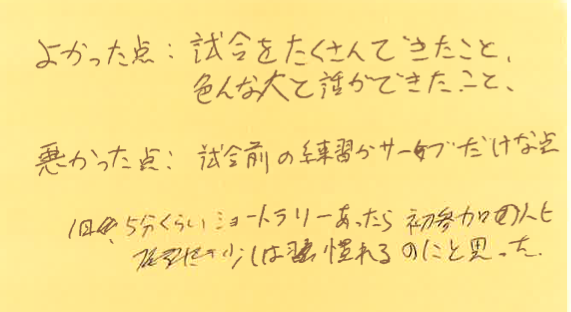 よかった点：試合をたくさんできたこと、
色んな人と話ができたこと、
悪かった点：試合前の練習がサーブだけな点
1回、5分くらいショートラリーあったら初参加の人も
少しは慣れるのにと思った.